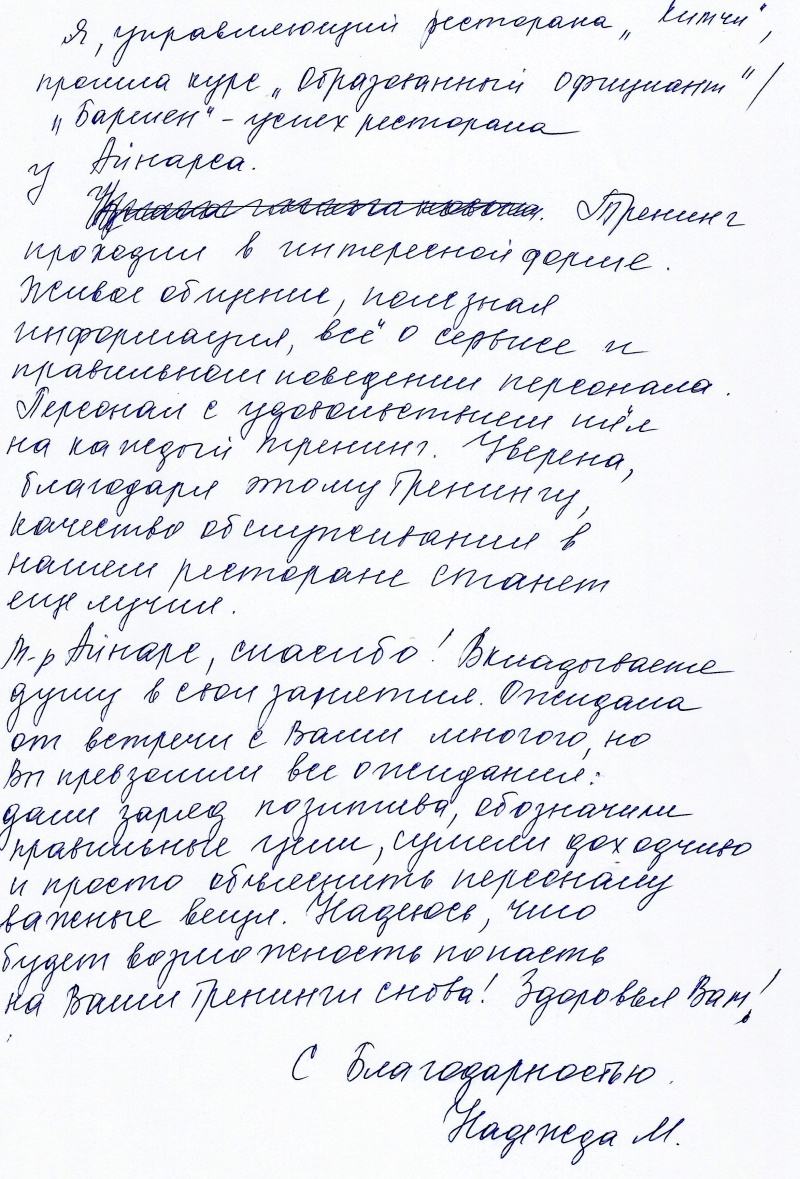 Я, управляющий ресторана „Кимчи“,
прошла курс „Образованный официант“/
„Бармен“ - успех ресторана
у Айнарса.
Тренинг
проходил в интересной форме.
Живое общение, полезная
информация, всё о сервисе и
правильном поведении персонала.
Персонал с удовольствием шёл
на каждый тренинг. Уверена,
благодаря этому Тренингу,
качество обслуживания в
нашем ресторане станет
еще лучше.
М-р Айнарс, спасибо! Вкладываете
душу в свои занятия. Ожидала
от встречи с Вами многого, но
Вы превзошли все ожидания:
дали заряд позитива, обозначили
правильные цели, сумели доходчиво
и просто объяснить персоналу
важные вещи. Надеюсь, что
будет возможность попасть
на Ваши Тренинги снова! Здоровья Вам!
С Благодарностью.
Надежда М.